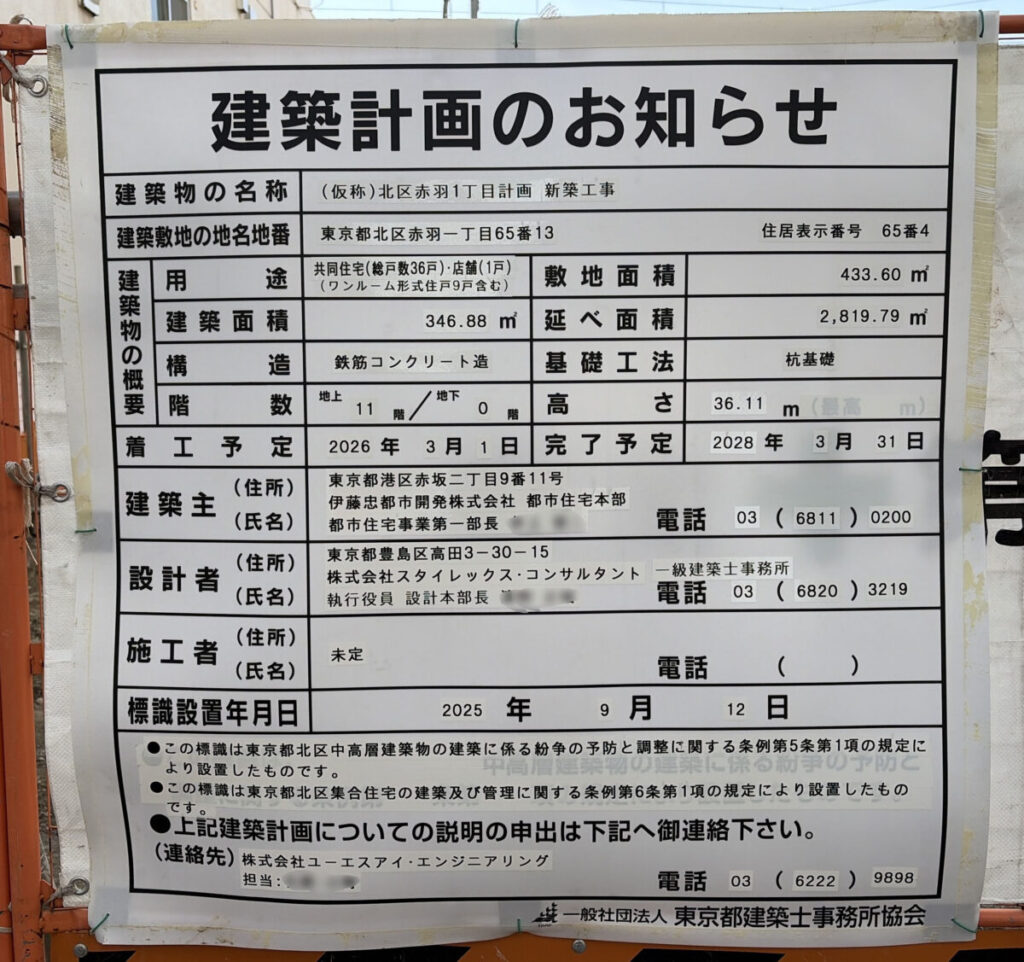 建築計画のお知らせ
建築物の名称 (仮称)北区赤羽1丁目計画 新築工事
建築敷地の地名地番 東京都北区赤羽一丁目65番13 住居表示番号 65番4
建築物の概要
用途 共同住宅(総戸数36戸)・店舗(1戸)
(ワンルーム形式住戸9戸含む)
敷地面積 433.60 ㎡
建築面積 346.88 ㎡ 延べ面積 2,819.79 ㎡
構造 鉄筋コンクリート造 基礎工法 杭基礎
階数 地上 11 階／地下 0 階 高さ 36.11 m (最高 m)
着工予定 2026 年 3 月 1 日 完了予定 2028 年 3 月 31 日
建築主 (住所) (氏名)
東京都港区赤坂二丁目9番11号
伊藤忠都市開発株式会社 都市住宅本部
都市住宅事業第一部長
電話 03 (6811) 0200
設計者 (住所) (氏名)
東京都豊島区高田3-30-15
株式会社スタイレックス・コンサルタント 一級建築士事務所
執行役員 設計本部長
電話 03 (6820) 3219
施工者 (住所) (氏名)
未定
電話 ( )
標識設置年月日 2025 年 9 月 12 日
●この標識は東京都北区中高層建築物の建築に係る紛争の予防と調整に関する条例第5条第1項の規定に
より設置したものです。
●この標識は東京都北区集合住宅の建築及び管理に関する条例第6条第1項の規定により設置したもの
です。
●上記建築計画についての説明の申出は下記へ御連絡下さい。
(連絡先) 株式会社ユーエスアイ・エンジニアリング
担当:
電話 03 (6222) 9898
一般社団法人 東京都建築士事務所協会